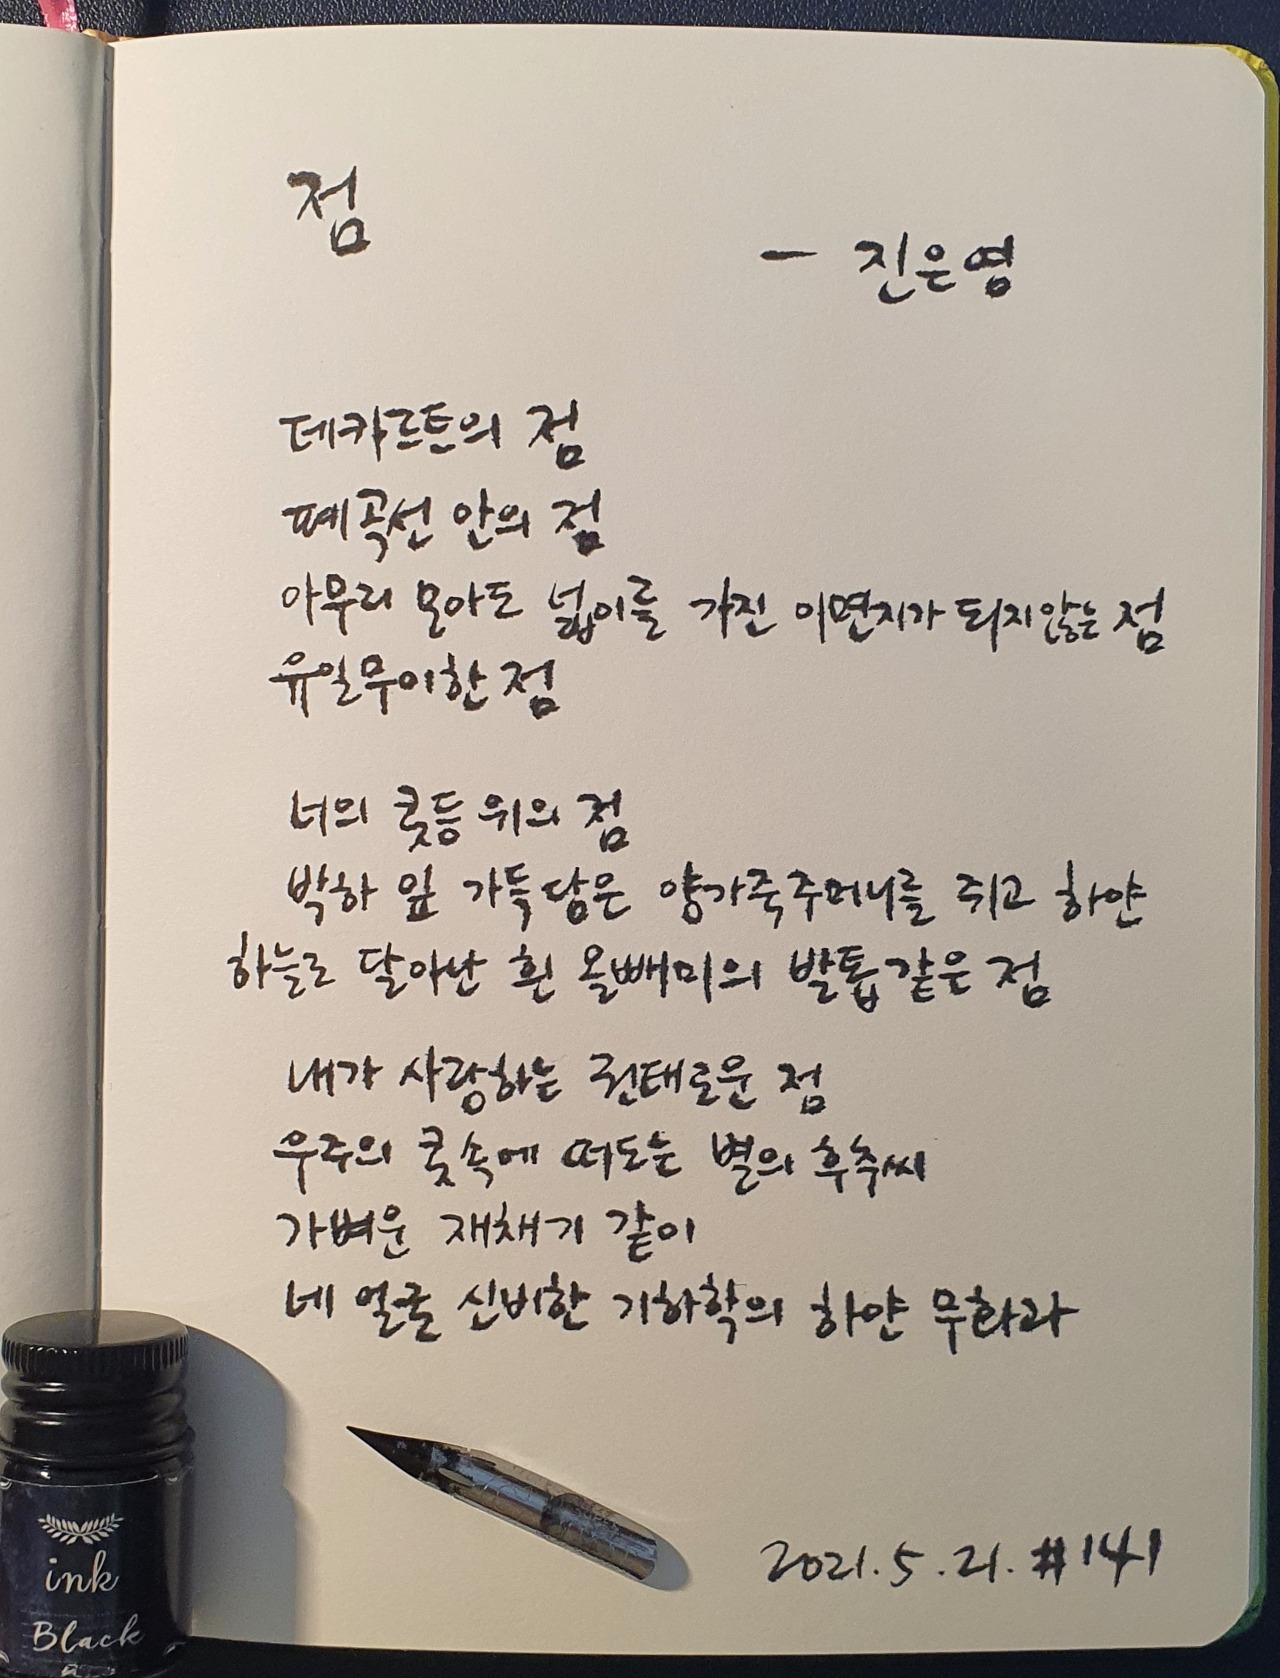 점
- 진은영
데카르트의 점
폐곡선 안의 점
아무리 모아도 넓이를 가진 이면지가 되지않는 점
유일무이한 점
너의 콧등 위의 점
박하 잎 가득담은 양가죽주머니를 쥐고 하얀
하늘로 달아난 흰 올빼미의 발톱같은 점
내가 사랑하는 권태로운 점
우주의 콧속에 떠도는 별의 후추씨
가벼운 재채기 같이
네 얼굴 신비한 기하학의 하얀 무화과
2021.5.21. #141
ink
Black